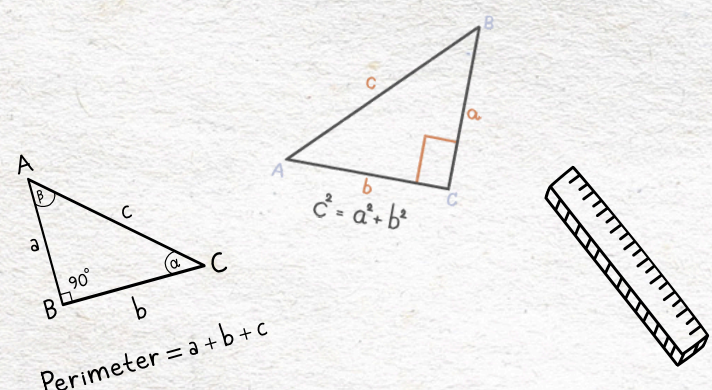 B
c
a
A
b
C
c² = a² + b²
A
β
c
a
α
C
90°
B
b
Perimeter = a + b + c